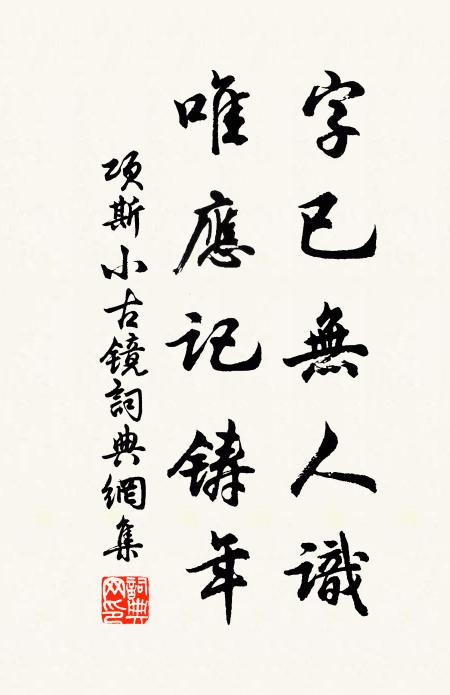 字已無人識
唯應記鑄年
项斯小古镜詞典網集
詞典网印